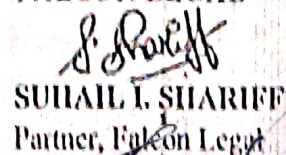 S. Shariff
SUHAIL I. SHARIFF
Partner, Falcon Legal